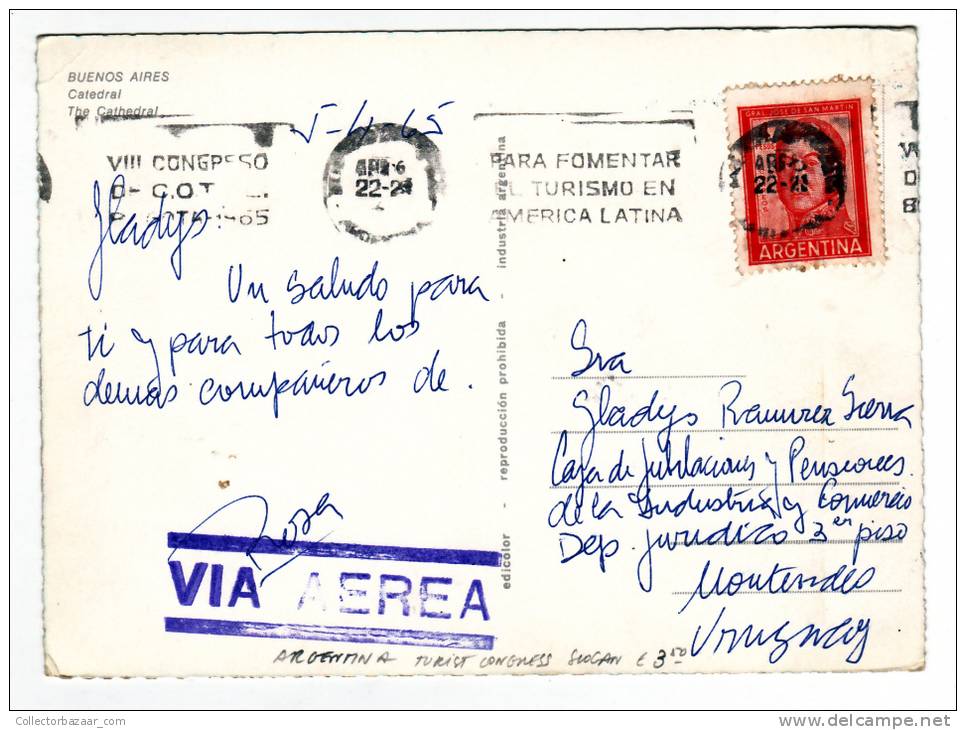 BUENOS AIRES
Catedral
The Cathedral
5-4-65
VIII CONGRESO
C.O.T.
1965
22-2
PARA FOMENTAR
EL TURISMO EN
AMERICA LATINA
GRAL. JOSE DE SAN MARTIN
PESOS
ARGENTINA
22-2
Gladys:
Un saludo para
ti y para todos los
demas compañeros de.
Rosa
VIA AEREA
edicolor - reproducción prohibida - industria argentina
Sra
Gladys Ramirez Sierra
Caja de Jubilaciones y Pensiones
de la Industria y Comercio
Dep. juridico 3er piso
Montevideo
Uruguay
ARGENTINA TURIST CONGRESS SLOGAN € 3.50
Collectorbazar.com
www.delcampe.net